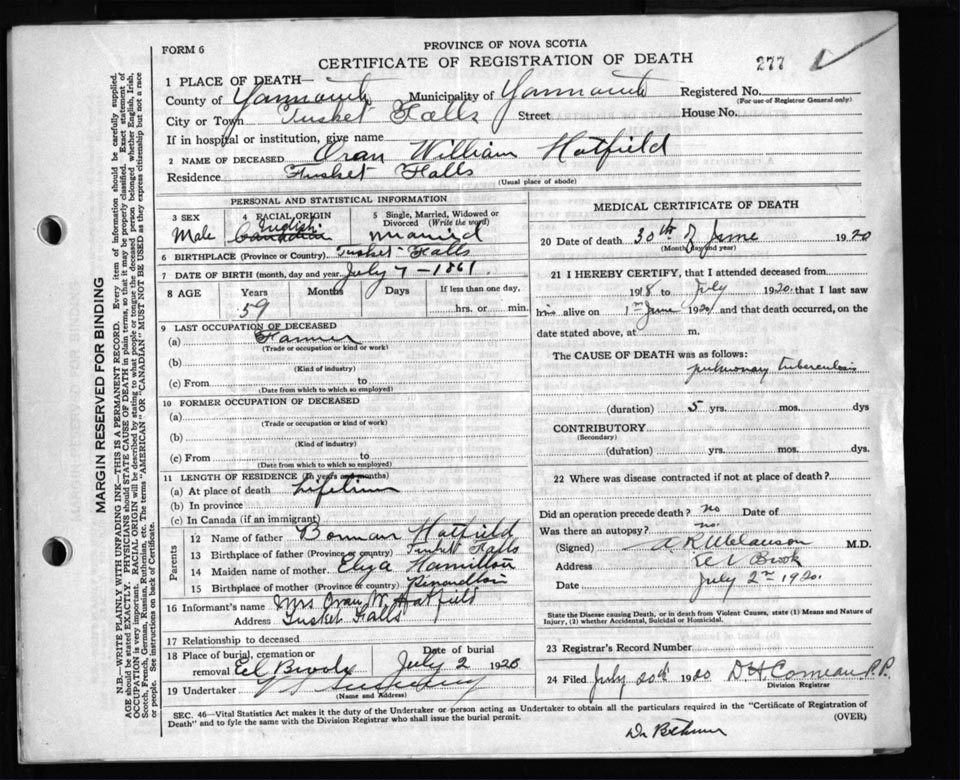 FORM 6
PROVINCE OF NOVA SCOTIA
CERTIFICATE OF REGISTRATION OF DEATH
277
1 PLACE OF DEATH—
County of Yarmouth Municipality of Yarmouth Registered No.
(For use of Registrar General only)
City or Town Tusket Falls Street House No.
If in hospital or institution, give name
2 NAME OF DECEASED Oran William Hatfield
Residence Tusket Falls
(Usual place of abode)
PERSONAL AND STATISTICAL INFORMATION
3 SEX Male
4 RACIAL ORIGIN English Canadian
5 Single, Married, Widowed or Divorced (Write the word) Married
6 BIRTHPLACE (Province or Country) Tusket Falls
7 DATE OF BIRTH (month, day and year) July 7 - 1861
8 AGE Years Months Days If less than one day,
59 hrs. or min.
9 LAST OCCUPATION OF DECEASED
(a) Farmer
(Trade or occupation or kind or work)
(b)
(Kind of industry)
(c) From to
(Date from which to which so employed)
10 FORMER OCCUPATION OF DECEASED
(a)
(b)
(Kind of industry)
(c) From to
(Date from which to which so employed)
11 LENGTH OF RESIDENCE (In years and months)
(a) At place of death Lifetime
(b) In province
(c) In Canada (if an immigrant)
Parents
12 Name of father Bowman Hatfield
13 Birthplace of father (Province or country) Tusket Falls
14 Maiden name of mother Eliza Hamilton
15 Birthplace of mother (Province or country)
16 Informant's name Mrs Oran W Hatfield
Address Tusket Falls
17 Relationship to deceased
18 Place of burial, cremation or removal El Brook Date of burial July 2 1920
19 Undertaker
(Name and Address)
MEDICAL CERTIFICATE OF DEATH
20 Date of death 30th of June 1920
(Month, day and year)
21 I HEREBY CERTIFY, that I attended deceased from
1918 to July 1920 that I last saw
him alive on 1st June 1920 and that death occurred, on the
date stated above, at m.
The CAUSE OF DEATH was as follows:
pulmonary tuberculosis
(duration) 5 yrs. mos. dys
CONTRIBUTORY
(Secondary)
(duration) yrs. mos. dys.
22 Where was disease contracted if not at place of death?
Did an operation precede death? no Date of
Was there an autopsy? no.
(Signed) M.D.
Address Brook
Date July 2nd 1920.
State the Disease causing Death, or in death from Violent Causes, state (1) Means and Nature of
Injury, (2) whether Accidental, Suicidal or Homicidal.
23 Registrar's Record Number
24 Filed July 20th 1920 D H Comeau P.P.
Division Registrar
SEC. 46—Vital Statistics Act makes it the duty of the Undertaker or person acting as Undertaker to obtain all the particulars required in the "Certificate of Registration of
Death" and to fyle the same with the Division Registrar who shall issue the burial permit.
(OVER)
MARGIN RESERVED FOR BINDING
N.B.—WRITE PLAINLY WITH UNFADING INK—THIS IS A PERMANENT RECORD. Every item of information should be carefully supplied.
AGE should be stated EXACTLY. PHYSICIANS should STATE CAUSE OF DEATH in plain terms, so that it may be properly classified. Exact statement of
OCCUPATION is very important. RACIAL ORIGIN will be described by stating to what people or tongue the deceased person belonged whether English, Irish,
Scotch, French, German, Russian, Ruthenian, etc. The terms "AMERICAN" OR "CANADIAN" MUST NOT BE USED as they express citizenship but not a race
or people. See instructions on back of Certificate.